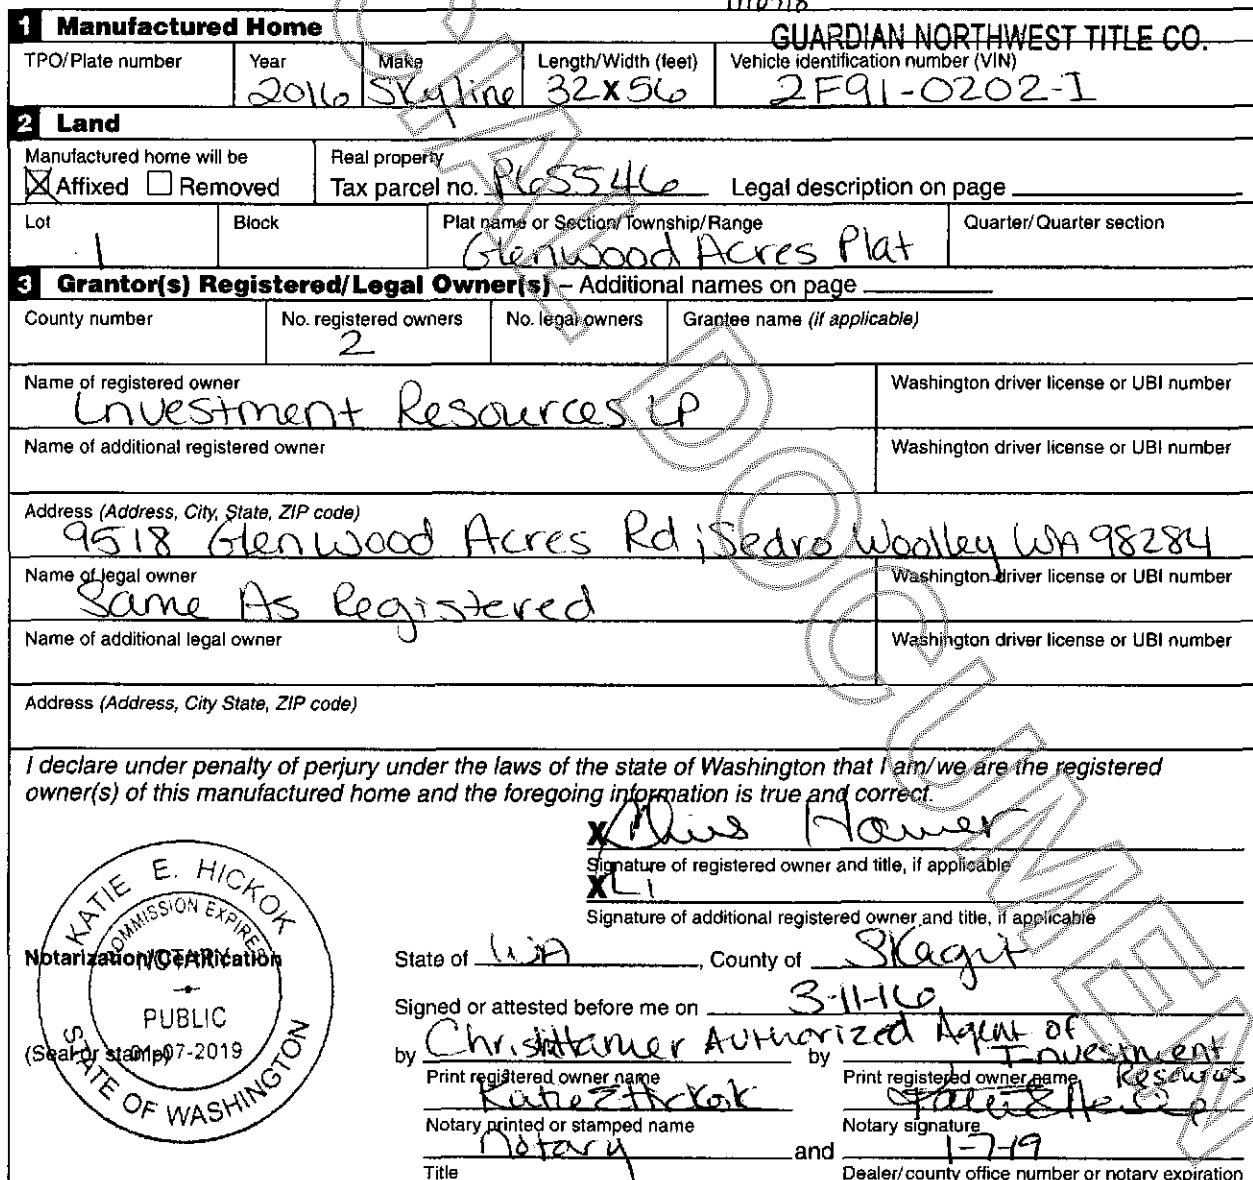 1 Manufactured Home
GUARDIAN NORTHWEST TITLE CO.
TPO/Plate number Year Make Length/Width (feet) Vehicle identification number (VIN)
2016 Skyline 32 x 56 2F91-0202-I
2 Land
Manufactured home will be Real property
Affixed Removed Tax parcel no. P65546 Legal description on page
Lot Block Plat name or Section/Township/Range Quarter/Quarter section
1 Glenwood Acres Plat
3 Grantor(s) Registered/Legal Owner(s) – Additional names on page
County number No. registered owners No. legal owners Grantee name (if applicable)
2
Name of registered owner Washington driver license or UBI number
Investment Resources LP
Name of additional registered owner Washington driver license or UBI number
Address (Address, City, State, ZIP code)
9518 Glenwood Acres Rd ; Sedro Woolley WA 98284
Name of legal owner Washington driver license or UBI number
Same As Registered
Name of additional legal owner Washington driver license or UBI number
Address (Address, City State, ZIP code)
I declare under penalty of perjury under the laws of the state of Washington that I am/we are the registered
owner(s) of this manufactured home and the foregoing information is true and correct.
X Chris Hamer
Signature of registered owner and title, if applicable
X
Signature of additional registered owner and title, if applicable
KATIE E. HICKOK
COMMISSION EXPIRES
NOTARY
PUBLIC
01-07-2019
STATE OF WASHINGTON
Notarization/Certification
(Seal or stamp)
State of WA, County of Skagit
Signed or attested before me on 3-11-16
by Chris Hamer Authorized Agent of
by Investment
Resources
Print registered owner name Print registered owner name
Katie E Hickok
Notary printed or stamped name Notary signature
Notary and 1-7-19
Title Dealer/county office number or notary expiration
UNOFFICIAL DOCUMENT